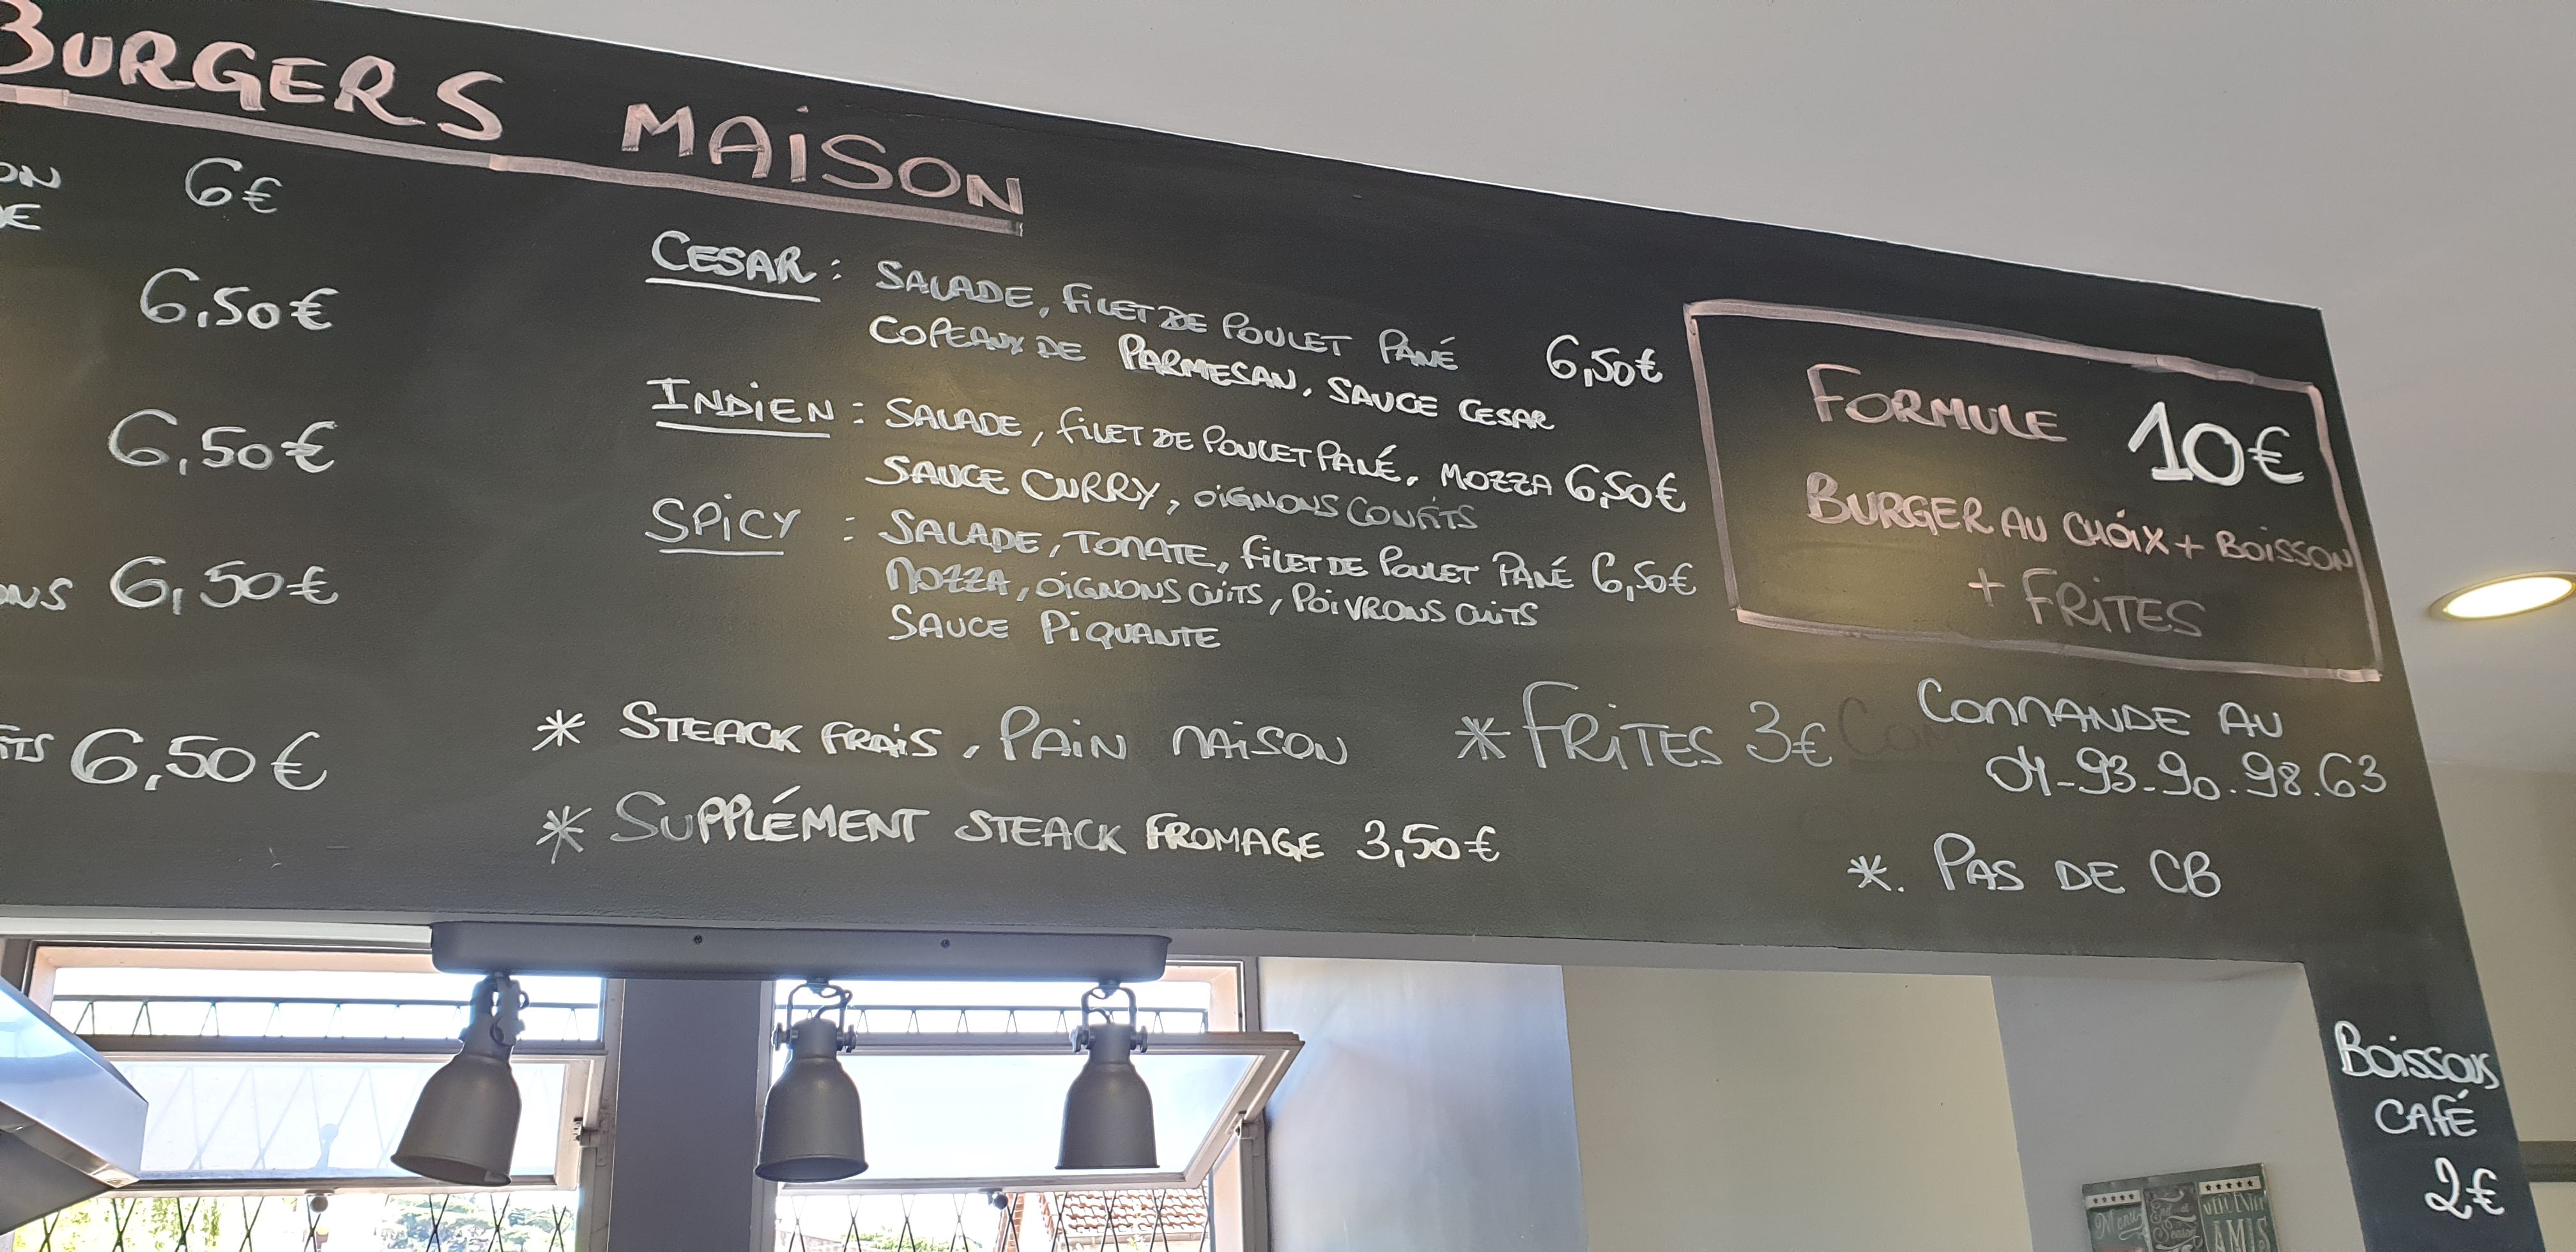 BURGERS MAISON
6€
6,50€
6,50€
6,50€
6,50€
CESAR : SALADE, FILET DE POULET PANÉ 6,50€
COPEAUX DE PARMESAN, SAUCE CESAR
INDIEN : SALADE, FILET DE POULET PANÉ, MOZZA 6,50€
SAUCE CURRY, OIGNONS CONFITS
SPICY : SALADE, TOMATE, FILET DE POULET PANÉ 6,50€
MOZZA, OIGNONS CUITS, POIVRONS CUITS
SAUCE PIQUANTE
* STEACK FRAIS, PAIN MAISON
* SUPPLÉMENT STEACK FROMAGE 3,50€
* FRITES 3€
FORMULE 10€
BURGER AU CHOIX + BOISSON
+ FRITES
COMMANDE AU
04-93-90.98.63
*. PAS DE CB
BOISSONS
CAFÉ
2€
AMIS